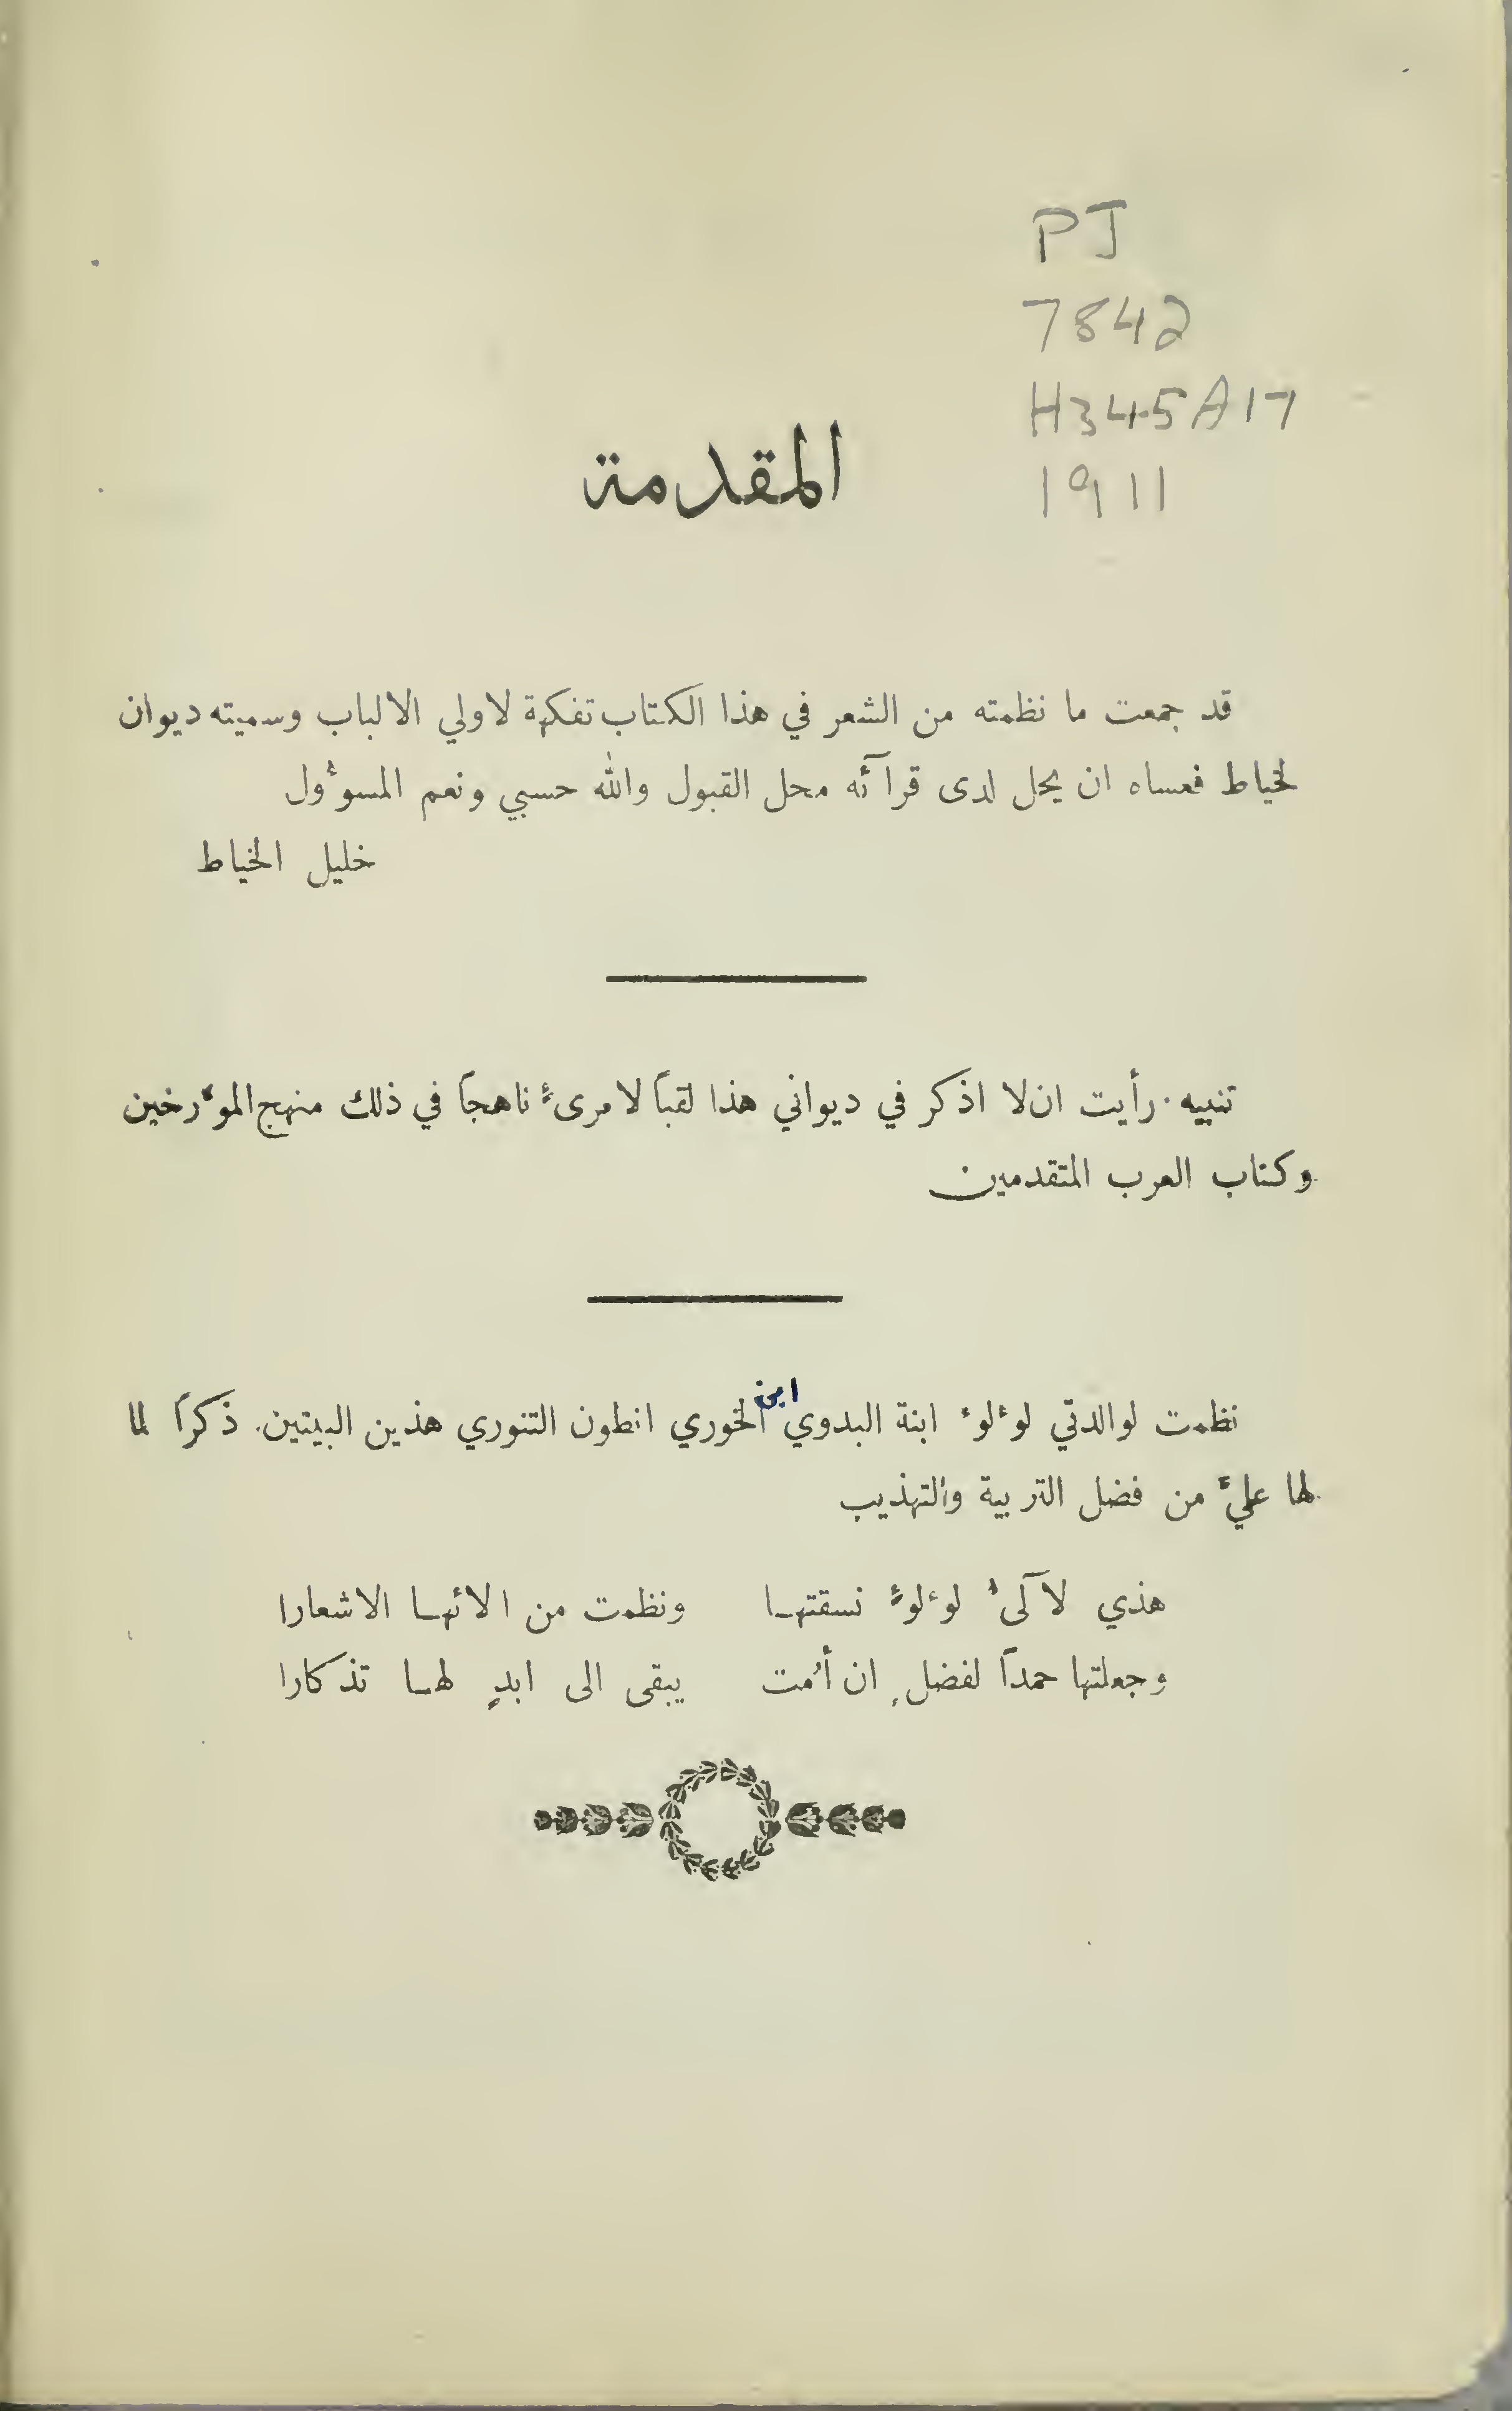 PJ
7842
H345A17
1911
المقدمة
قد جمعت ما نظمته من الشعر في هذا الكتاب تفكهة لاولي الالباب وسميته ديوان
لخياط فعساه ان يحل لدى قرآئه محل القبول والله حسبي ونعم المسوٴول
خليل الخياط
تنبيه . رأيت ان لا اذكر في ديواني هذا لقباً لامرىءٍ ناهجاً في ذلك منهج الموٴرخين
وكتاب العرب المتقدمين
ابن
نظمت لوالدتي لوٴلوٴ ابنة البدوي الخوري انطون التنوري هذين البيتين. ذكراً لما
لها عليَّ من فضل التربية والتهذيب
هذي لآلىءُ لوٴلوءٍ نسقتهـا ونظمت من الائهـا الاشعارا
وجعلتها حمداً لفضلٍ ان أَمت يبقى الى ابدٍ لهـا تذكارا